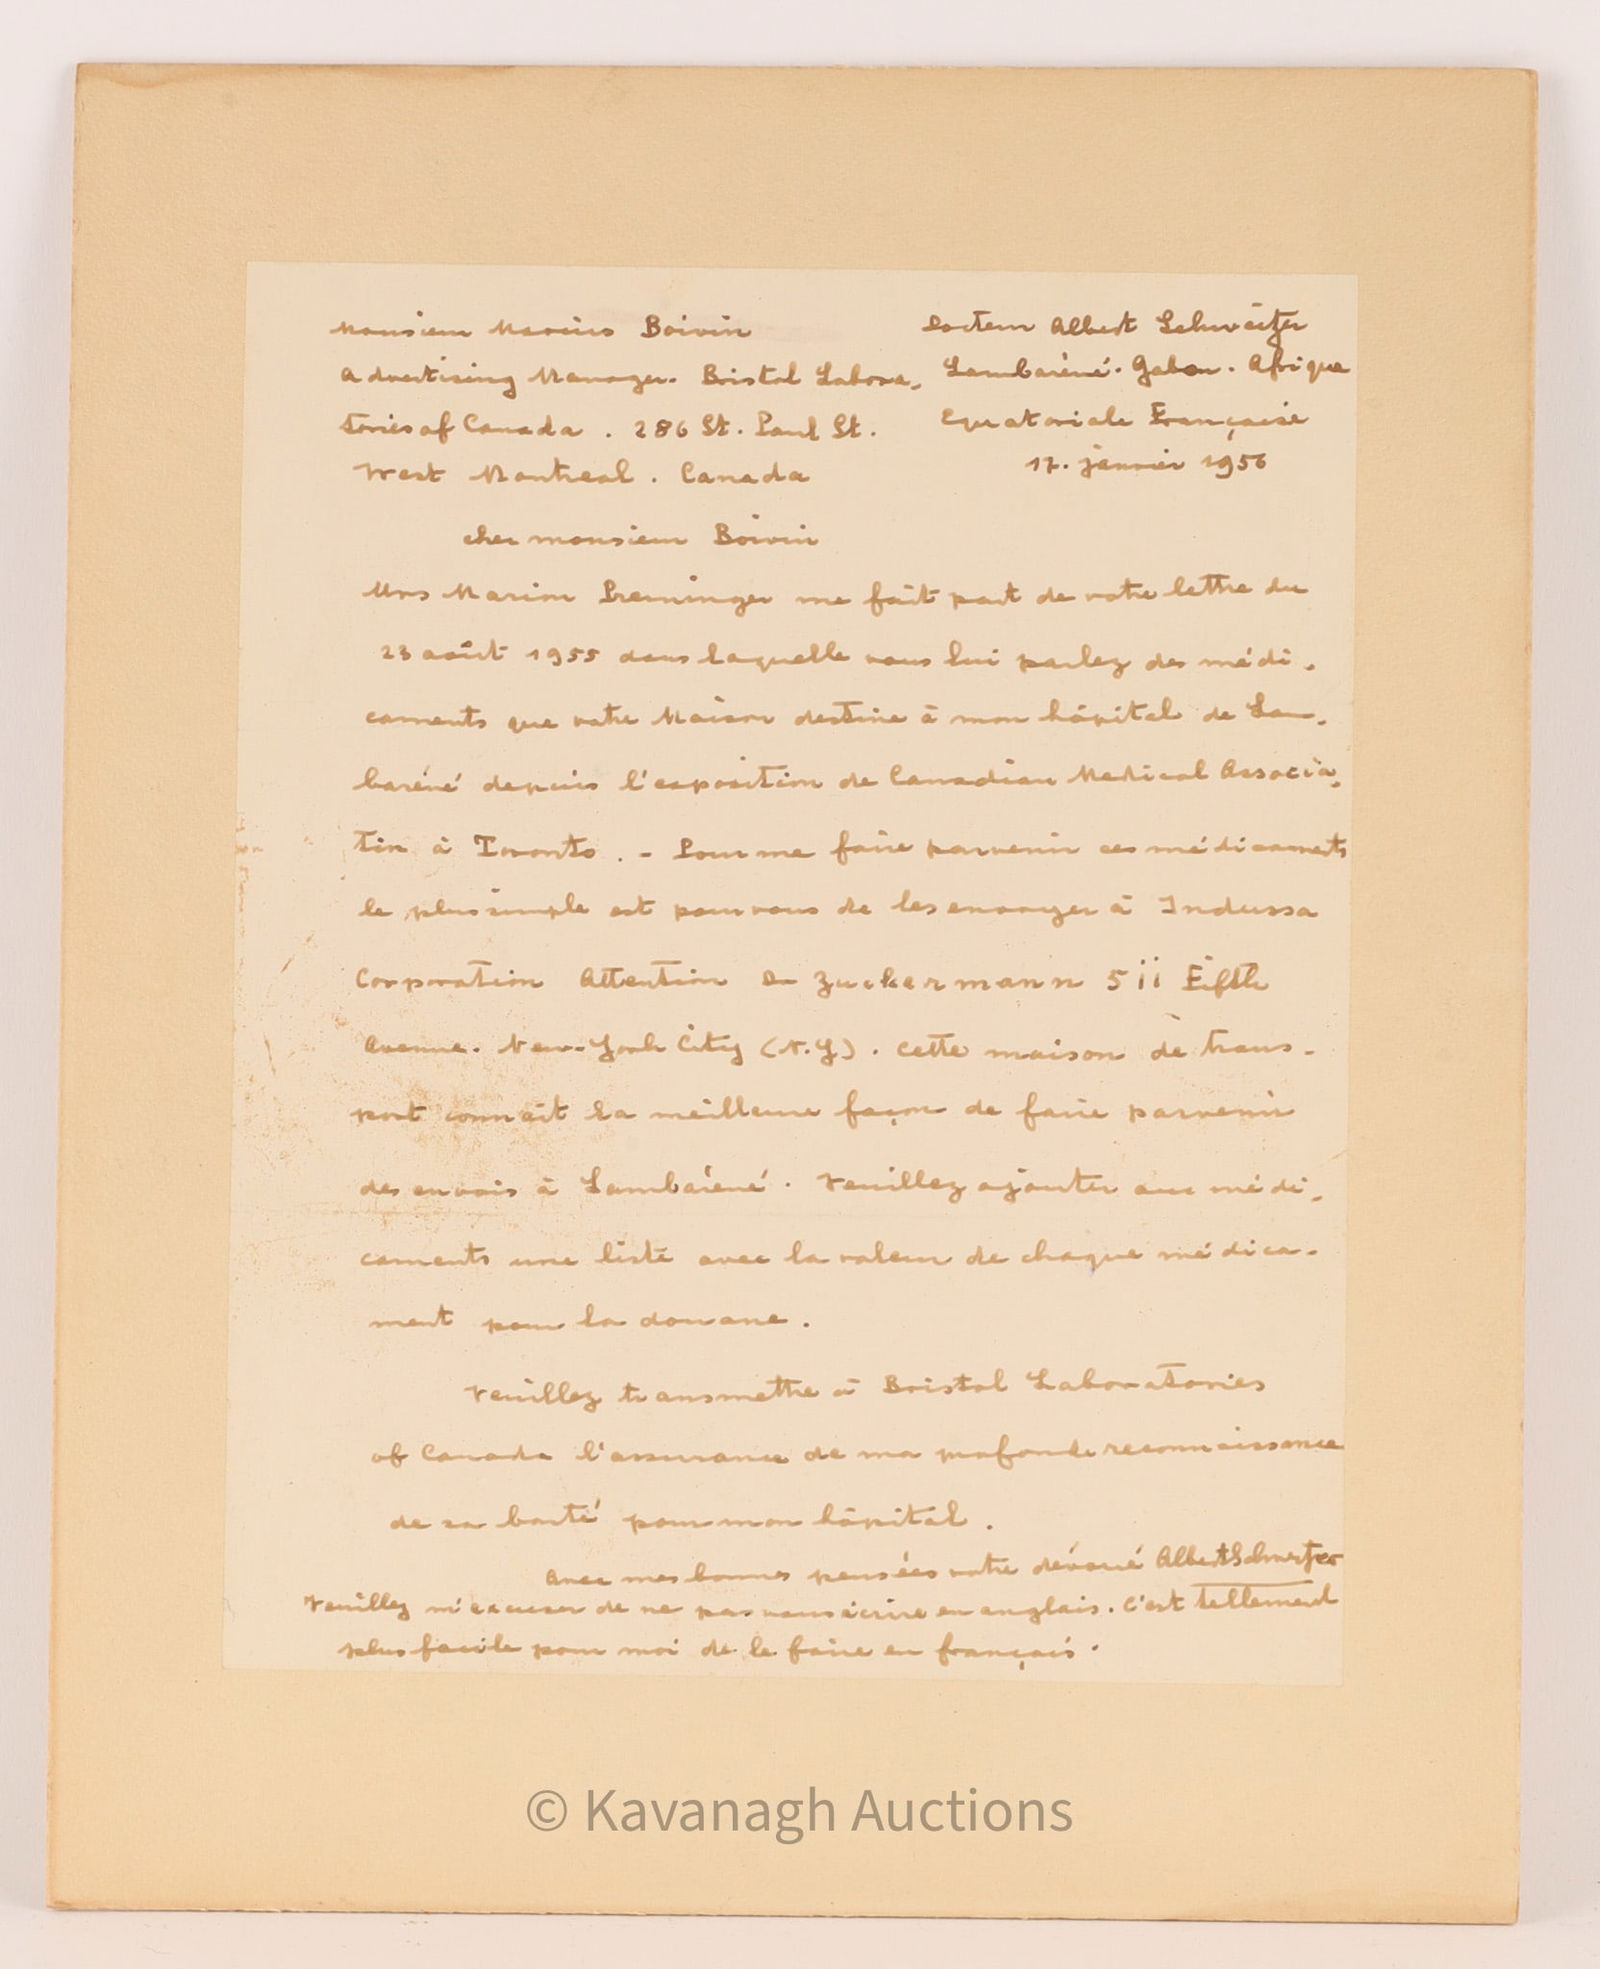 Monsieur Marius Boivin
Advertising Manager. Bristol Labora-
tories of Canada. 286 St. Paul St.
West Montreal. Canada
Docteur Albert Schweitzer
Lambaréné. Gabon. Afrique
Equatoriale Française
17. janvier 1956
cher monsieur Boivin
Mrs Marion Preminger me fait part de votre lettre du
23 août 1955 dans laquelle vous lui parlez des médi-
caments que votre Maison destine à mon hôpital de Lam-
baréné depuis l'exposition de Canadian Medical Associa-
tion à Toronto. - Pour me faire parvenir ces médicaments
le plus simple est pour vous de les envoyer à Indussa
Corporation Attention Dr Zuckermann 511 Fifth
Avenue. New-York City (N.Y). Cette maison de trans-
port connait la meilleure façon de faire parvenir
des envois à Lambaréné. Veuillez ajouter aux médi-
caments une liste avec la valeur de chaque médica-
ment pour la douane.
Veuillez transmettre à Bristol Laboratories
of Canada l'assurance de ma profonde reconnaissance
de sa bonté pour mon hôpital.
Avec mes bonnes pensées votre dévoué Albert Schweitzer
Veuillez m'excuser de ne pas vous écrire en anglais. C'est tellement
plus facile pour moi de le faire en français.
© Kavanagh Auctions